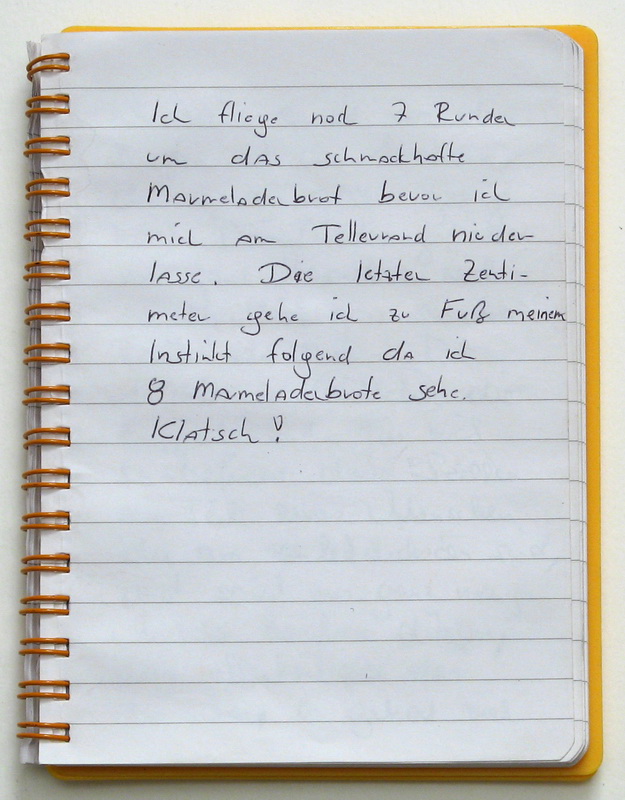 Ich fliege noch 7 Runden
um das schmackhafte
Marmeladenbrot bevor ich
mich am Tellerrand nieder-
lasse. Die letzten Zenti-
meter gehe ich zu Fuß meinem
Instinkt folgend da ich
8 Marmeladenbrote sehe.
Klatsch!